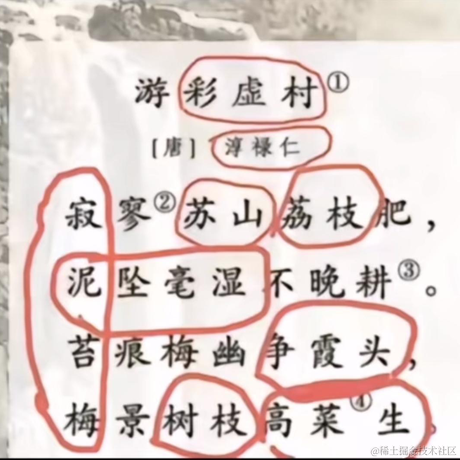 游彩虚村①
[唐] 淳禄仁
寂寥②苏山荔枝肥，
泥坠毫湿不晚耕③。
苔痕梅幽争霞头，
梅景树枝高菜④生。
@稀土掘金技术社区